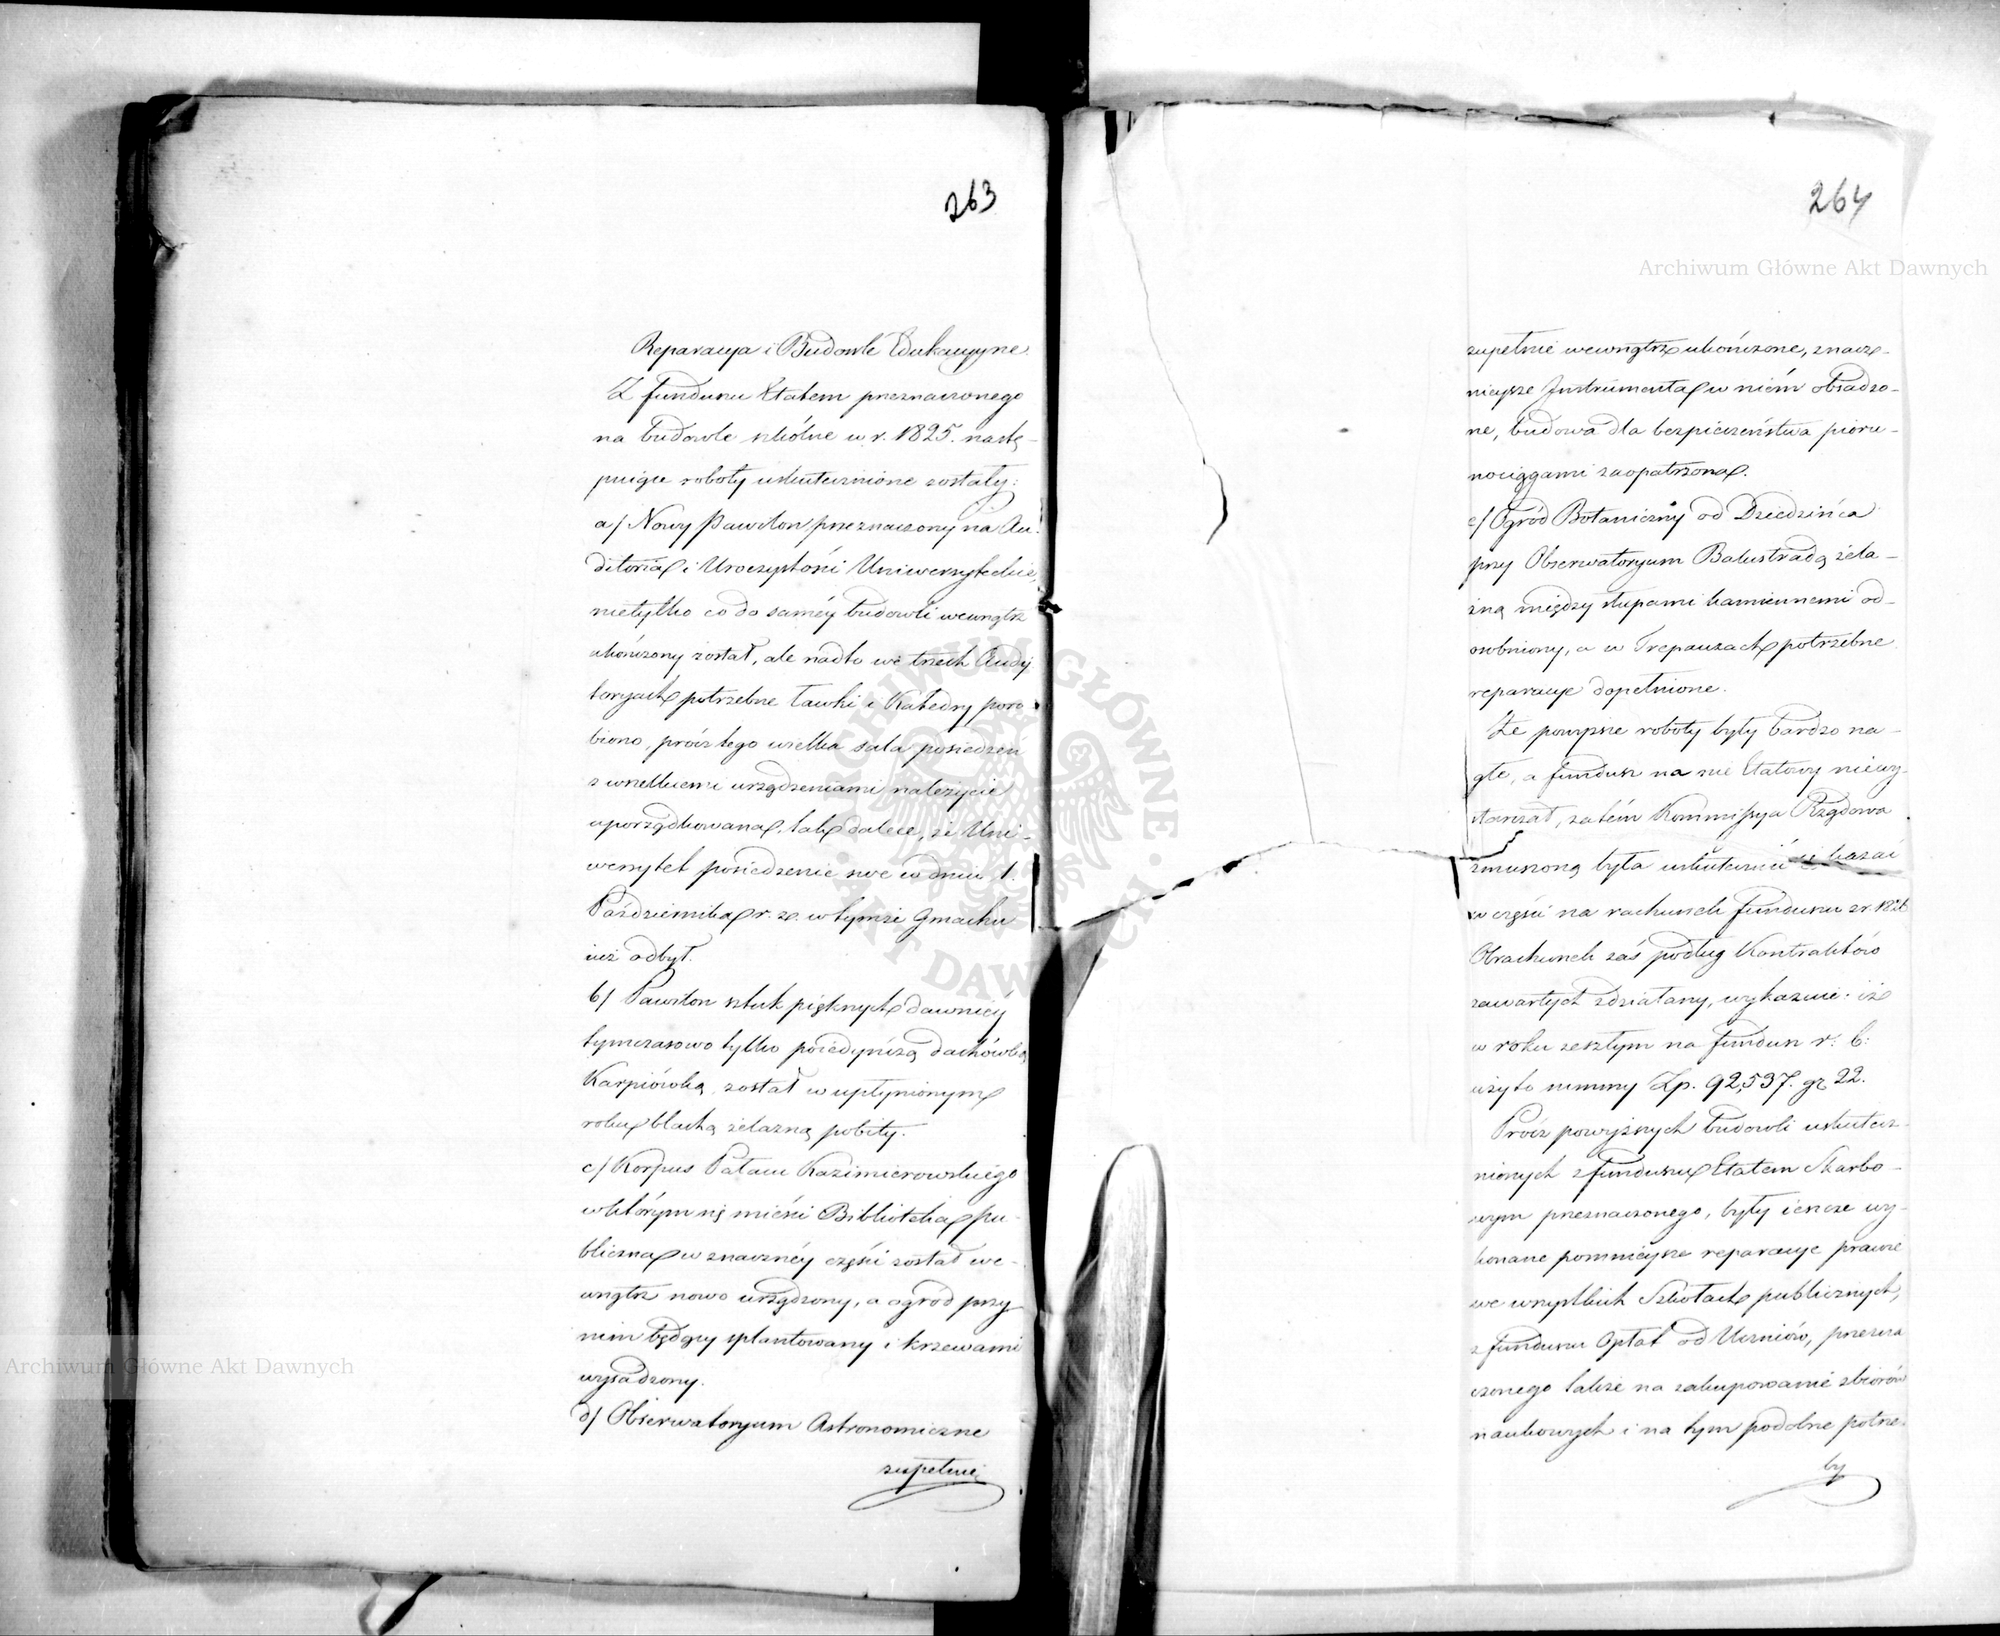 263
Reparacya i Budowle Edukacyyne.
Z funduszu Etatem przeznaczonego
na budowle szkólne w r. 1825. nastę-
puiące roboty uskutecznione zostały:
a/ Nowy Pawilon przeznaczony na Au-
ditoria i Uroczystości Uniwersyteckie,
nietylko co do saméy budowli wewnątrz
ukończony został, ale nadto we trzech Audy
toryach potrzebne ławki i Katedry poro
biono, prócz tego wielka sala posiedzeń
z wszelkiemi urządzeniami należycie
uporządkowana, tak dalece, że Uni-
wersytet posiedzenie swe w dniu 1.
Października r. z. w tymże Gmachu
iuż odbył.
b/ Pawilon sztuk pięknych dawniéy
tymczasowo tylko poiedyńczą dachówką
Karpiówką, został w upłynionym
roku blachą żelazną pobity.
c/ Korpus Pałacu Kazimierowskiego
w którym się mieści Biblioteka pu-
bliczna w znacznéy części został we-
wnątrz nowo urządzony, a ogród przy
nim będący splantowany i krzewami
wysadzony.
d/ Obserwatoryum Astronomiczne
zupełnie
264
zupełnie wewnątrz ukończone, znacz-
nieysze Instrumenta w niém obsadzo-
ne, budowa dla bezpieczeństwa pioru-
nociągami zaopatrzona.
e/ Ogród Botaniczny od Dziedzińca
przy Obserwatoryum Balustradą żela-
zną między słupami kamiennemi od-
osobniony, a w Trepauzach potrzebne
reparacye dopełnione.
Że powyższe roboty były bardzo na-
głe, a fundusz na nie Etatowy niewy-
starczał, zatém Kommissya Rządowa
zmuszoną była uskutecznić ie kazać
w części na rachunek funduszu z r. 1826
Obrachunek zaś podług Kontraktów
zawartych zdziałany, wykazuie: iż
w roku zeszłym na fundusz r: b:
użyto summy Zp. 92,537. gr 22.
Prócz powyższych budowli uskutecz-
nionych z funduszu Etatem Skarbo-
wym przeznaczonego, były ieszcze wy-
konane pomnieysze reparacye prawie
we wszystkich Szkołach publicznych,
z funduszu Opłat od Uczniów, przezna
czonego także na zakupowanie zbiorów
naukowych i na tym podobne potrze-
by
Archiwum Główne Akt Dawnych
Archiwum Główne Akt Dawnych
ARCHIWUM GŁÓWNE · AKT DAWNYCH ·